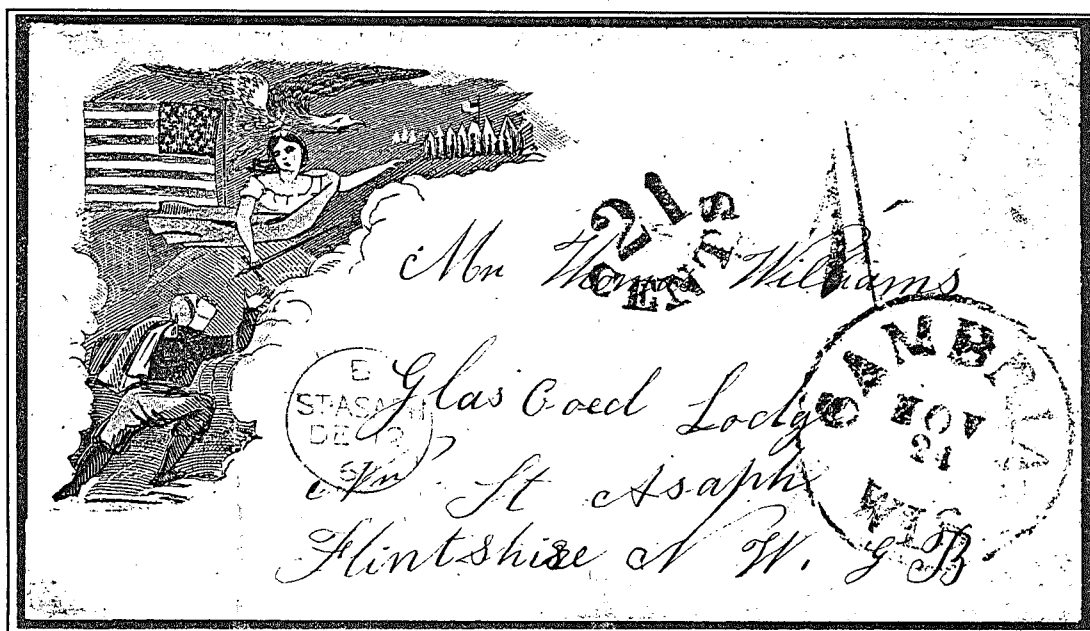 21
CENTS
Mr Thomas Williams
Glas Coed Lodge
Nr St Asaph
Flintshire N W. G B
B
ST ASAPH
DE
CAMBRIA
NOV
WIS